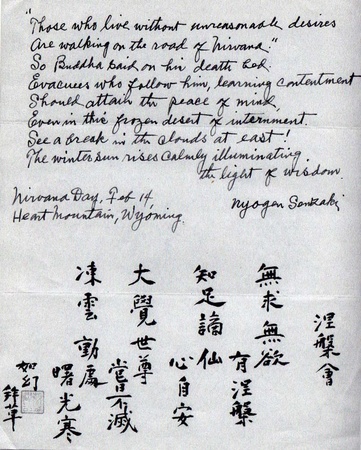 "Those who live without unreasonable desires
Are walking on the road of Nirvana."
So Buddha said on his death bed.
Evacuees who follow him, learning contentment
Should attain the peace of mind,
Even in this frozen desert of internment.
See a break in the clouds at east!
The winter sun rises calmly illuminating
the light of wisdom.
Nirvana Day, Feb 14.
Heart Mountain, Wyoming.
Nyogen Senzaki
涅槃會
無求無欲
有涅槃
知足謫仙
心自安
大覺世尊
不滅
凍雲動處
曙光寒
如幻